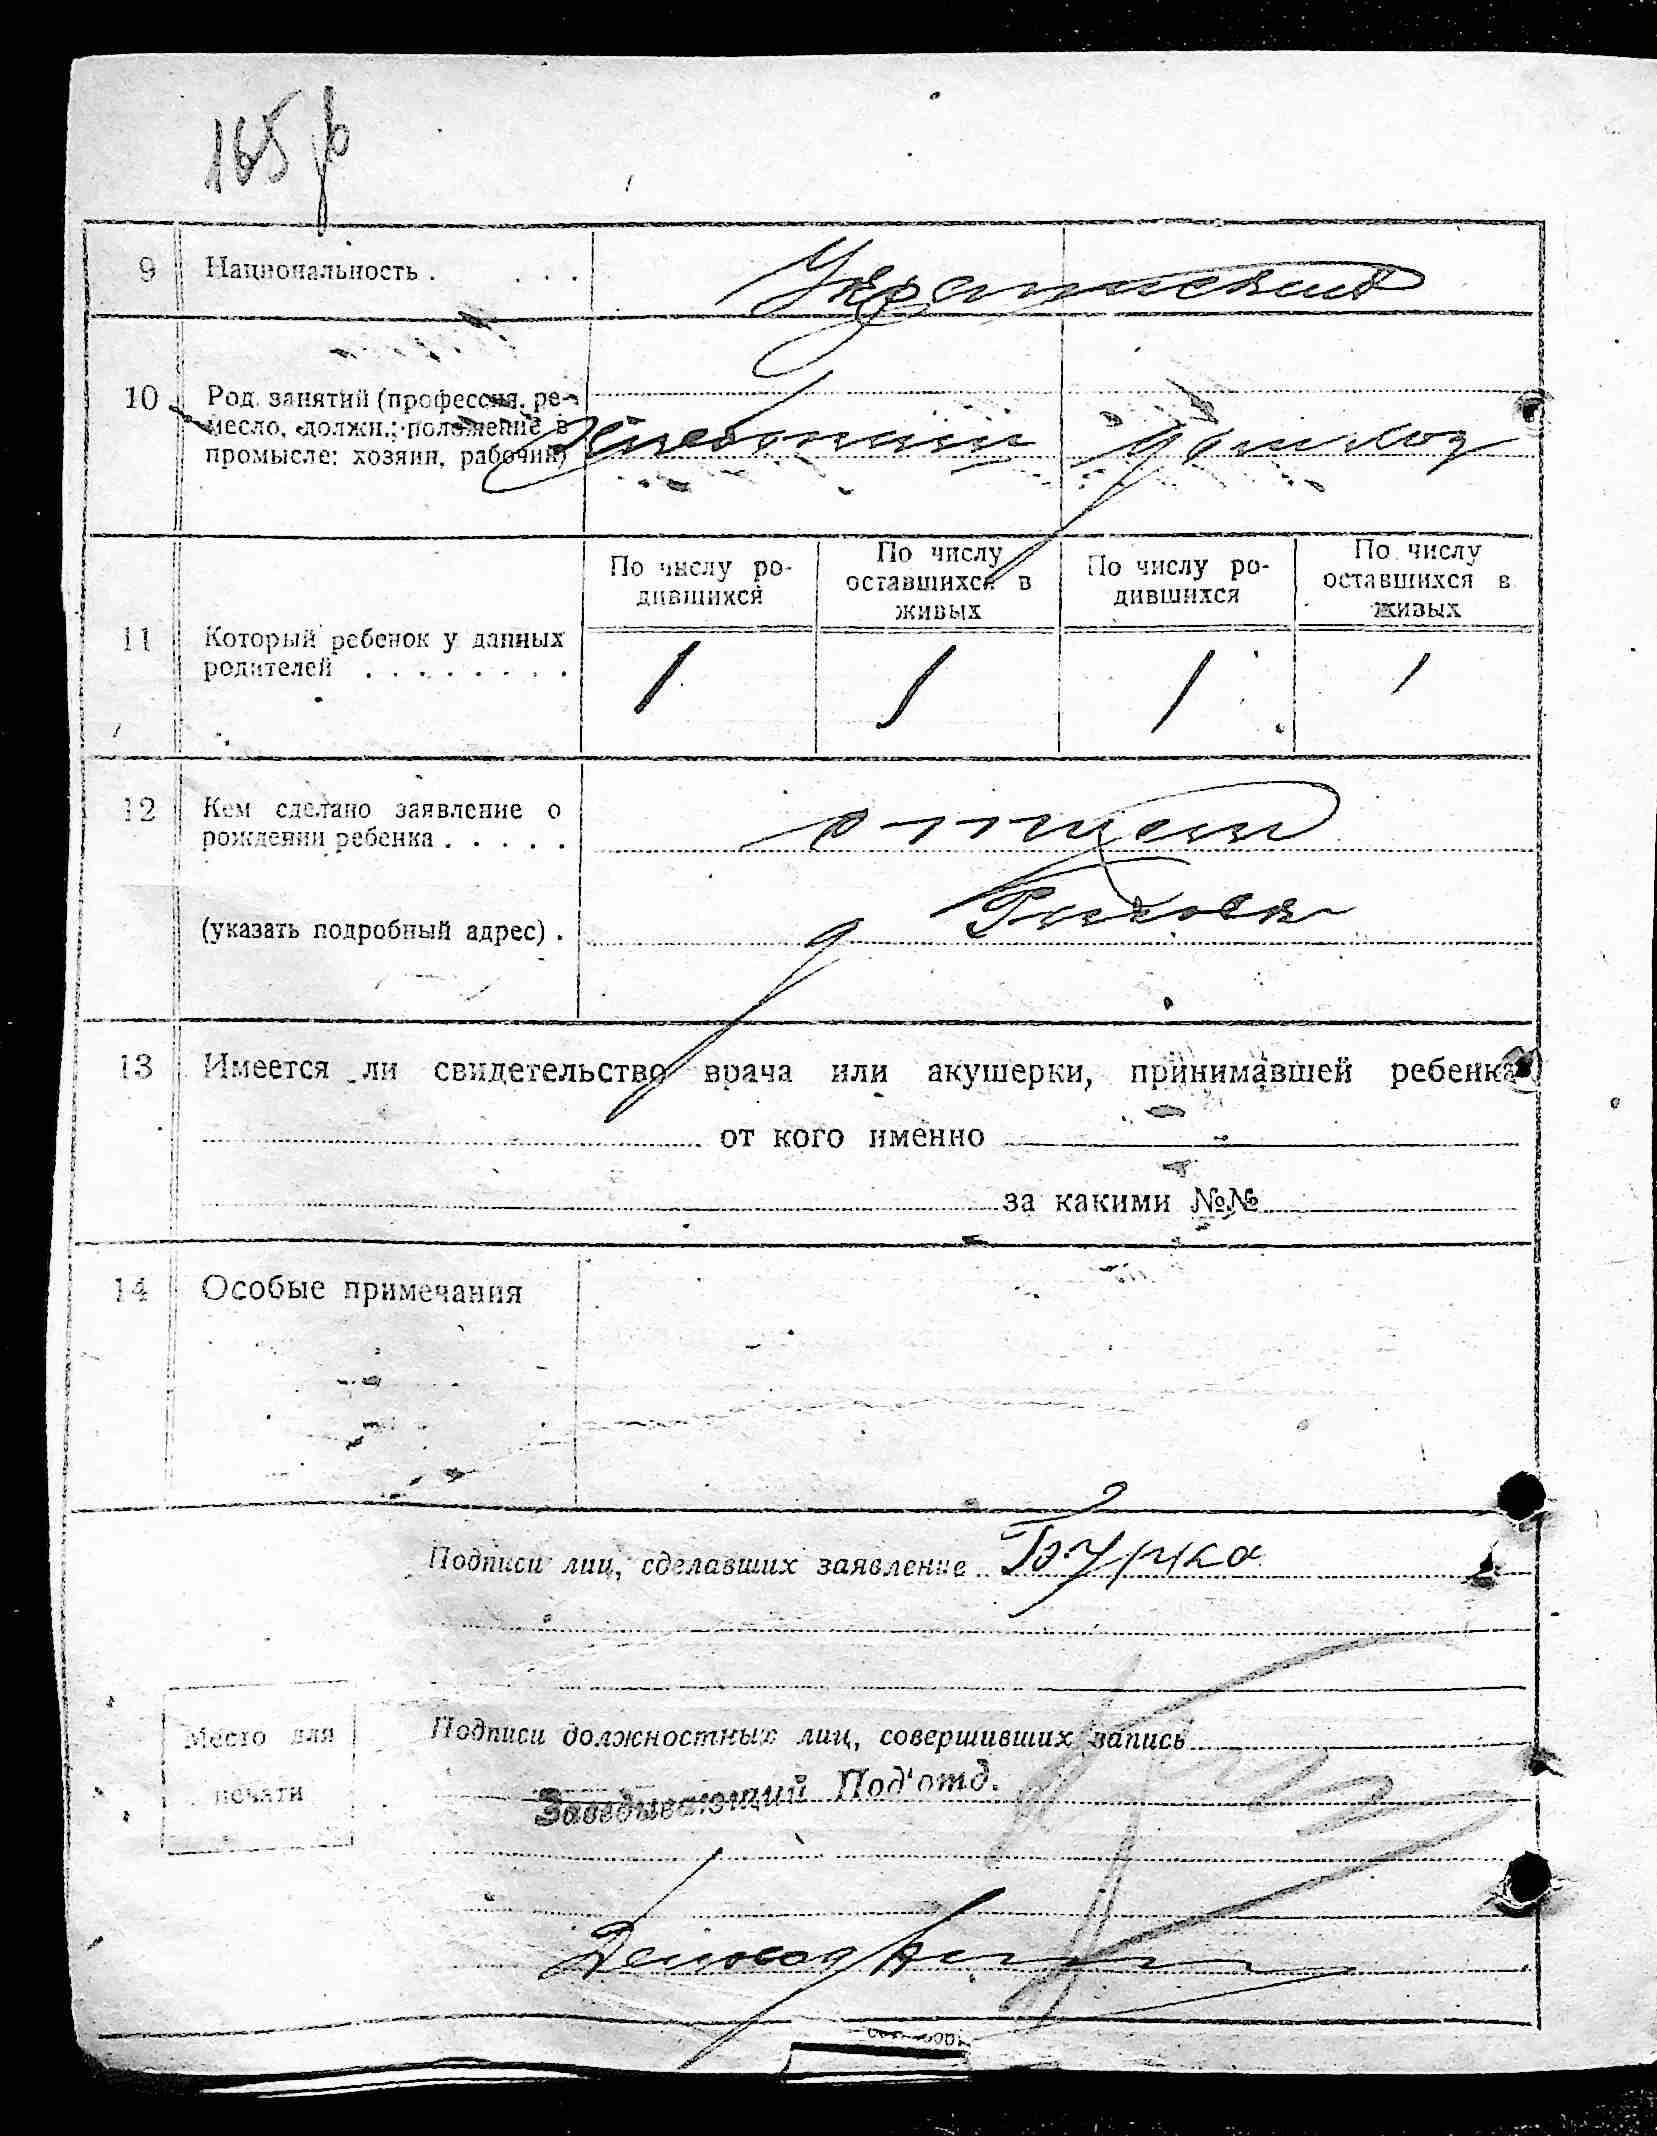 165
9 Национальность . . . .
Украинский
10 Род занятий (профессия, ре-
месло, должн.; положение в
промысле: хозяин, рабочий)
По числу ро-
дившихся
По числу
оставшихся в
живых
По числу ро-
дившихся
По числу
оставшихся в
живых
11 Который ребенок у данных
родителей . . . . . . . .
1 1 1 1
12 Кем сделано заявление о
рождении ребенка . . . . .
отцем
(указать подробный адрес) .
13 Имеется ли свидетельство врача или акушерки, принимавшей ребенка
от кого именно
за какими №№
14 Особые примечания
Подписи лиц, сделавших заявление
Место для
печати
Подписи должностных лиц, совершивших запись
Заведывающий Под'отд.